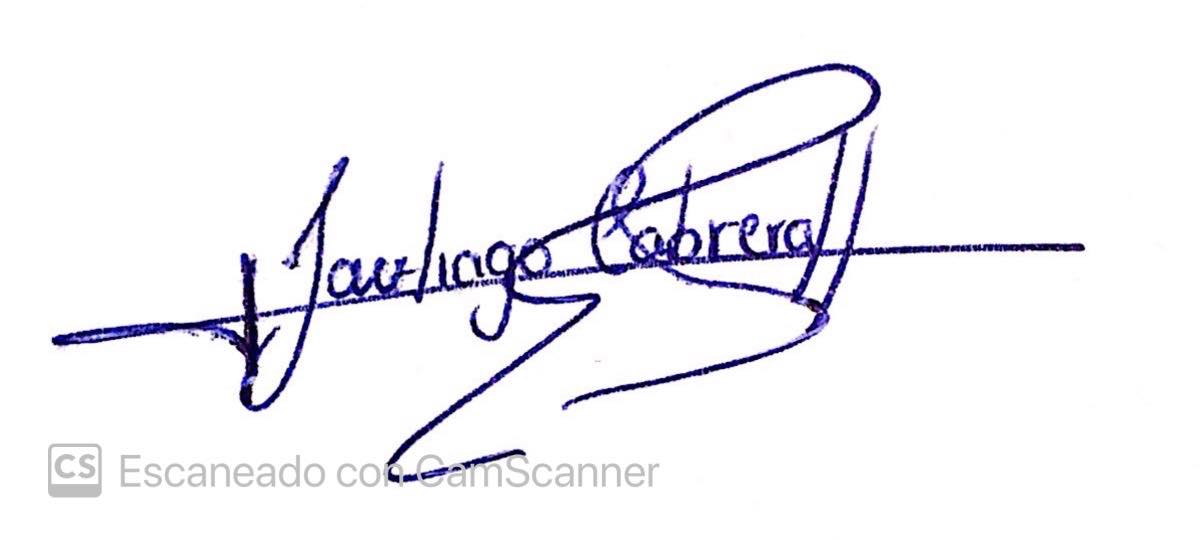 Santiago Cabrera
CS Escaneado con CamScanner